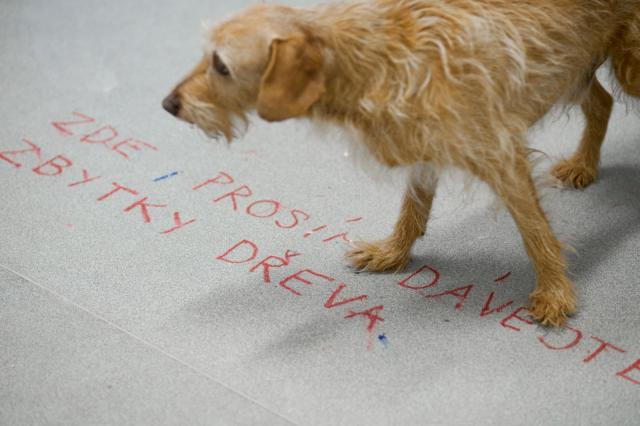 ZDE PROSÍM DÁVEJTE
ZBYTKY DŘEVA